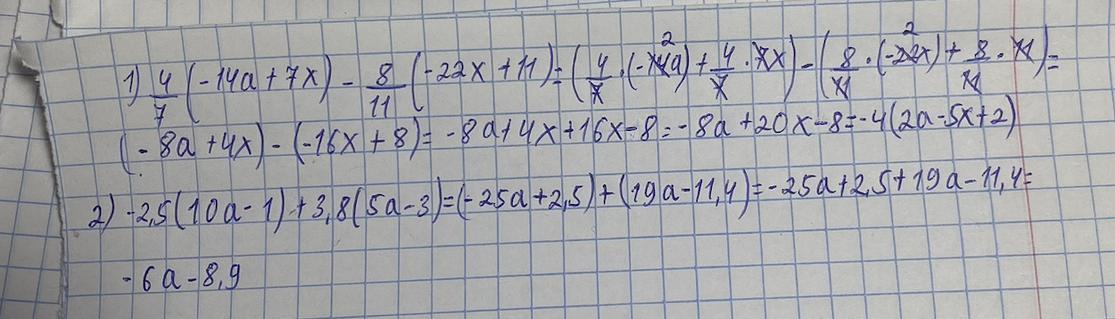 1) 4/7 (-14a + 7x) - 8/11 (-22x + 11) = (4/7 · (-14a) 2 + 4/7 · 7x) - (8/11 · (-22x) 2 + 8/11 · 11) =
(-8a + 4x) - (-16x + 8) = -8a + 4x + 16x - 8 = -8a + 20x - 8 = -4(2a - 5x + 2)
2) -2,5(10a - 1) + 3,8(5a - 3) = (-25a + 2,5) + (19a - 11,4) = -25a + 2,5 + 19a - 11,4 =
-6a - 8,9